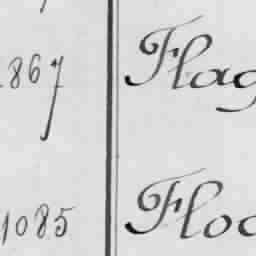 867 Flag
1085 Floo